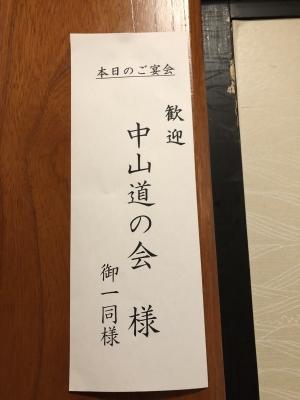 本日のご宴会
歓迎
中山道の会 様
御一同様